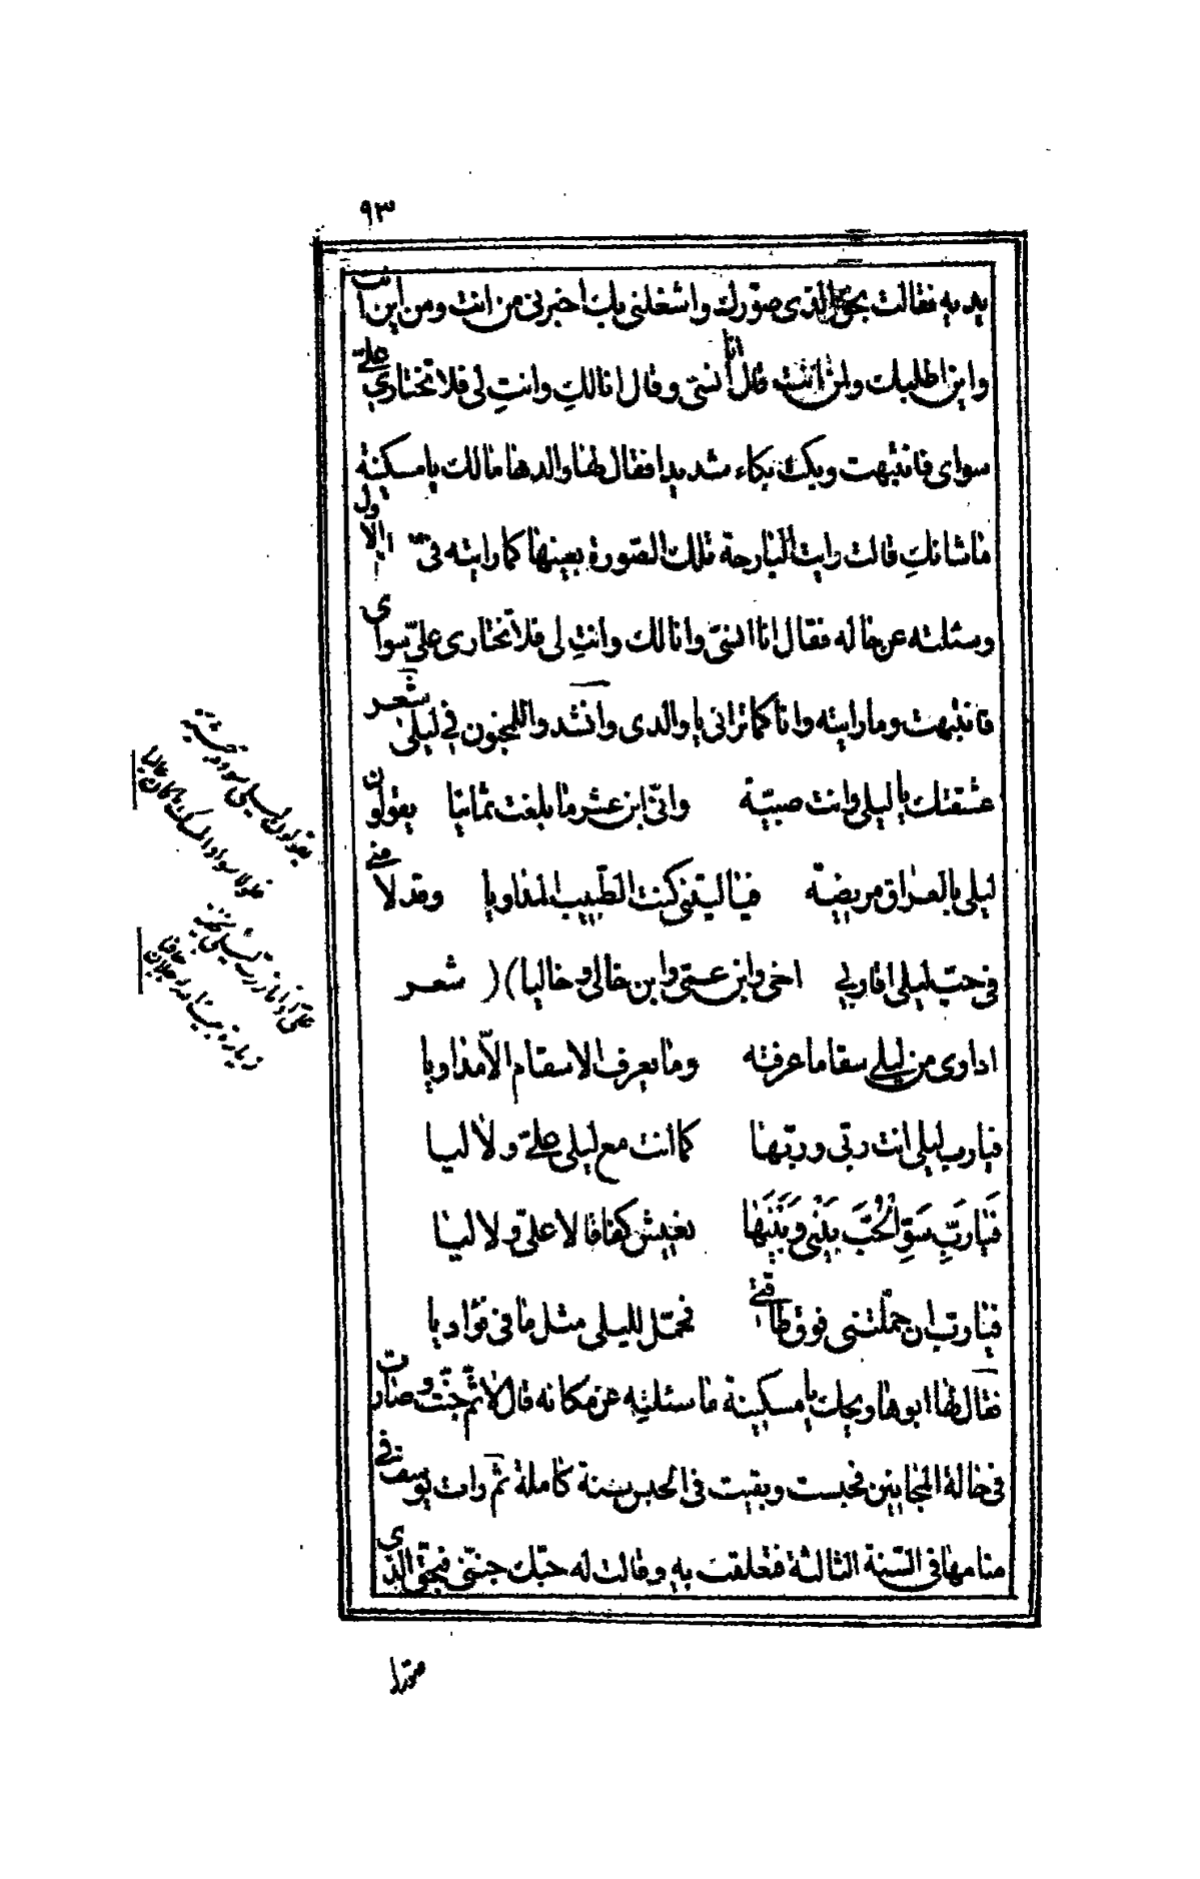 ٩٣
يديه فقالت بحق الذى صورك واشغلنى بك اخبرنى من انت ومن اين انت
واين اطلبك ولمن انت قال انا انسى وقال انا لكِ وانتِ لى فلا تختارى علىّ
سواى فانتبهت وبكت بكاء شديدا فقال لها والدها مالك يا مسكينة
ما شانكِ قالت رايت البارحة تلك الصّورة بعينها كما رايته فى الاول
وسئلته عن حاله فقال انا انسىّ وانا لك وانتِ لى فلا تختارى علىّ سواى
فانتبهت وما رايته وانا كما ترانى يا والدى وانشد واللمجنون فى ليلى شعر
عشقتك يا ليلى وانت صبيّة وانّى ابن عشر ما بلغت ثمانيا يقولون
ليلى بالعراق مريضة فيا ليتنى كنت الطّبيب المداويا وقد لامنى
فى حبّ ليلى اقاربى اخى وابن عمّى وابن خالى وخاليا ) ( شعر
اداوى من ليلى سقاما عرفته وما يعرف الاسقام الّا مداويا
فيا رب ليلى انت ربّى وربّها كما انت مع ليلى علىّ ولا ليا
فَيَا رَبِّ سَوِّ الْحُبَّ بَيْنِى وَبَيْنَهَا نعيش كفافا لا علىّ ولا ليا
فيا ربّ ان حمّلتنى فوق طاقتى فحمّل لليلى مثل ما فى فؤاديا
فقال لها ابوها ويحك يا مسكينة ما سئلتِه عن مكانه قال لا ثمّ جنّت وصارت
فى حالة المجانين فحبست وبقيت فى الحبس سنة كاملة ثمّ رات يوسف فى
منامها فى السّنة الثالثة فتعلقت به وقالت له حبّك جننّى فبحق الذى
صورك